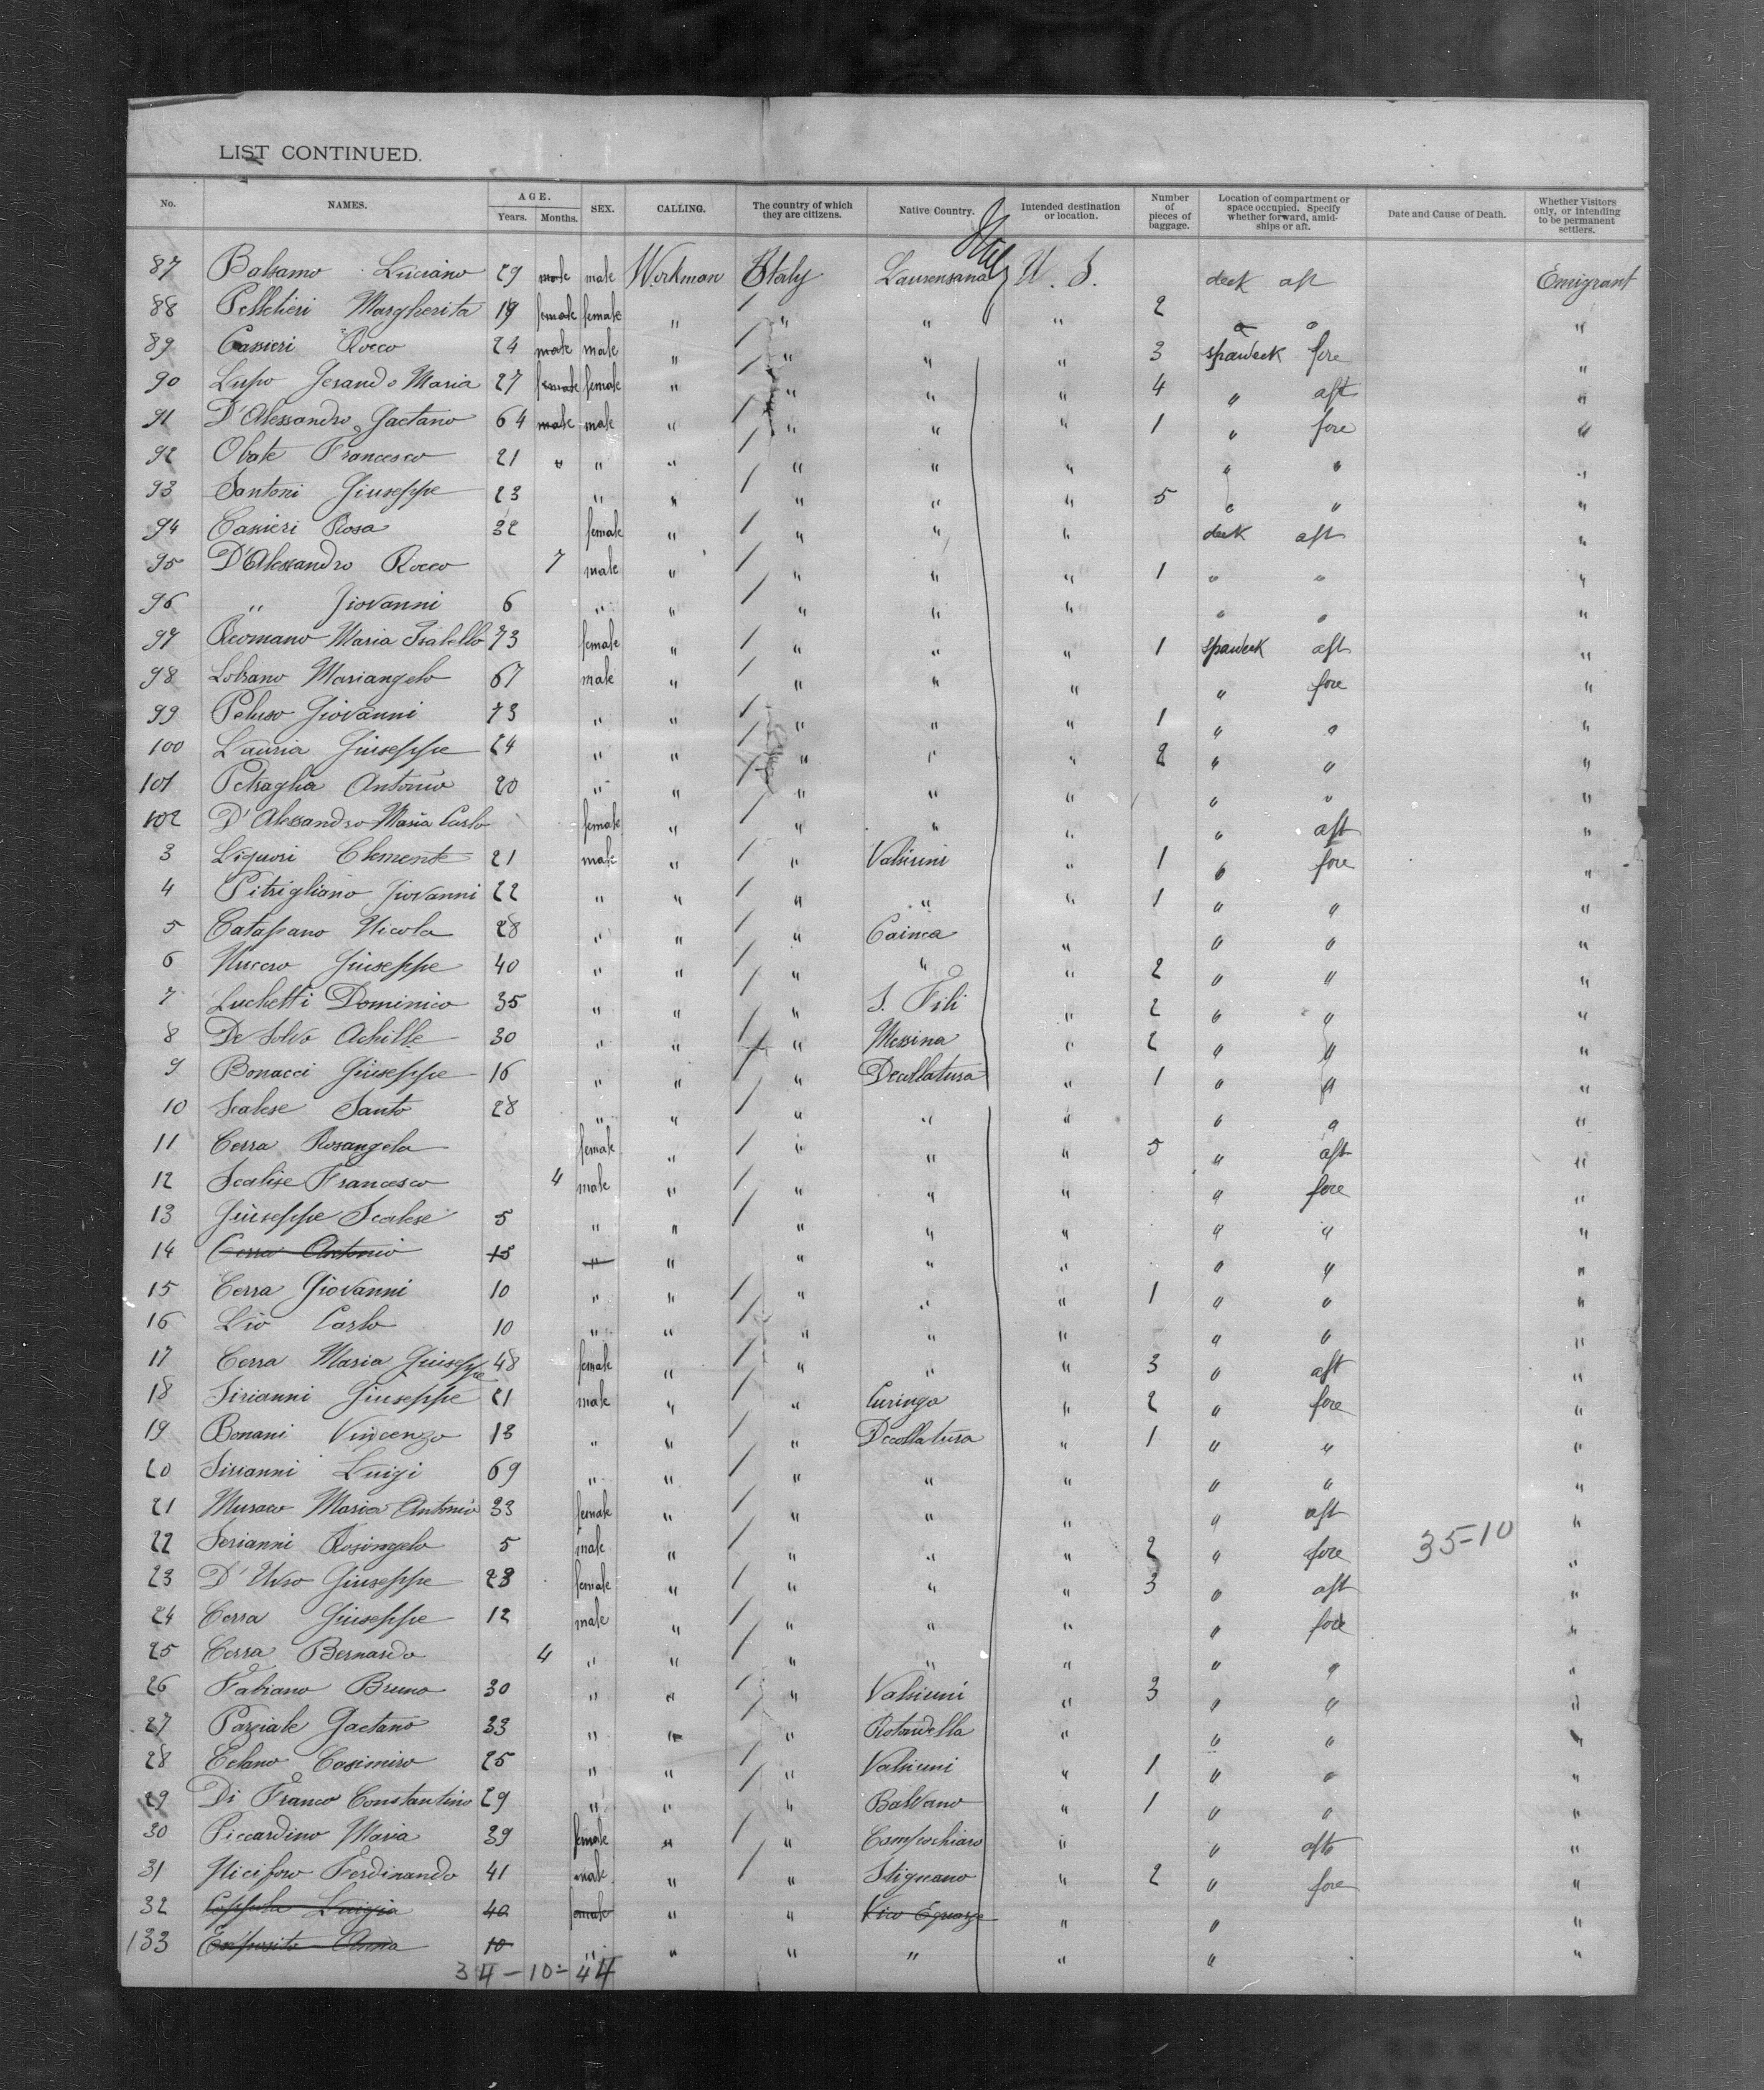 LIST CONTINUED.
No. NAMES. AGE. Years. Months. SEX. CALLING. The country of which they are citizens. Native Country. Intended destination or location. Number of pieces of baggage. Location of compartment or space occupied. Specify whether forward, amidships or aft. Date and Cause of Death. Whether Visitors only, or intending to be permanent settlers.
Italy
87 Balsamo Luciano 29 male male Workman Italy Laurensana U. S. deck aft Emigrant
88 Pelletieri Margherita 19 female female " / " " " 2 " " "
89 Cassieri Rocco 24 male male " / " " " 3 spardeck fore "
90 Lupo Gerando Maria 27 female female " / " " " 4 " aft "
91 D'Alessandro Gaetano 64 male male " / " " " 1 " fore "
92 Obate Francesco 21 " " " / " " " " " "
93 Santoni Giuseppe 23 " " / " " " 5 " " "
94 Cassieri Rosa 32 female " / " " " deck aft "
95 D'Alessandro Rocco 7 male " / " " " 1 " " "
96 " Giovanni 6 " " / " " " " " "
97 Romano Maria Isabella 73 female " / " " " 1 spardeck aft "
98 Mariangelo 67 male " / " " " " fore "
99 Peluso Giovanni 73 " " / " " " 1 " " "
100 Lauria Giuseppe 24 " " / " " " 2 " " "
101 Petraglia Antonio 20 " " / " " " " " "
102 D'Alessandro Maria Carlo female " / " " " " aft "
3 Liguori Clemente 21 male " / " Valsinni " 1 " fore "
4 Pitrigliano Giovanni 22 " " / " " " 1 " " "
5 Catapano Nicola 28 " " / " " " " "
6 Giuseppe 40 " " / " " " 2 " " "
7 Luchetti Dominico 35 " " / " S. Fili " 2 " " "
8 De Salvo Achille 30 " " / " Messina " 2 " " "
9 Bonacci Giuseppe 16 " " / " Decollatura " 1 " " "
10 Scalese Santo 28 " " / " " " " " "
11 Cerra Rosangela female " / " " " 5 " aft "
12 Scalise Francesco 4 male " / " " " " fore "
13 Giuseppe Scalese 5 " " / " " " " " "
14 Cerra Antonio 15 " " " " " " " "
15 Cerra Giovanni 10 " " / " " " 1 " " "
16 Lio Carlo 10 " " / " " " " " "
17 Cerra Maria Giuseppe 48 female " / " " " 3 " aft "
18 Sirianni Giuseppe 21 male " / " Curinga " 2 " fore "
19 Bonani Vincenzo 13 " " / " Decollatura " 1 " " "
20 Sirianni Luigi 69 " " / " " " " " "
21 Muraco Maria Antonio 33 female " / " " " " aft "
22 Serianni Rosingelo 5 male " / " " " 2 " fore 35-10 "
23 D'Urso Giuseppe 23 female " / " " " 3 " aft "
24 Cerra Giuseppe 12 male " / " " " " fore "
25 Cerra Bernardo 4 " " / " " " " " "
26 Fabiano Bruno 30 " " / " Valsinni " 3 " " "
27 Parciale Gaetano 33 " " / " Rotondella " " " "
28 Casimiro 25 " " / " Valsinni " 1 " " "
29 Di Franco Constantino 29 " " / " Balvano " 1 " " "
30 Piccardino Maria 39 female " / " Campochiaro " " aft "
31 Niciforo Ferdinando 41 male " / " Stignano " 2 " fore "
32 Coppola Luigia 40 female " " Vico Equense " " "
133 Esposito Anna 10 " " " " " " "
34-10=44